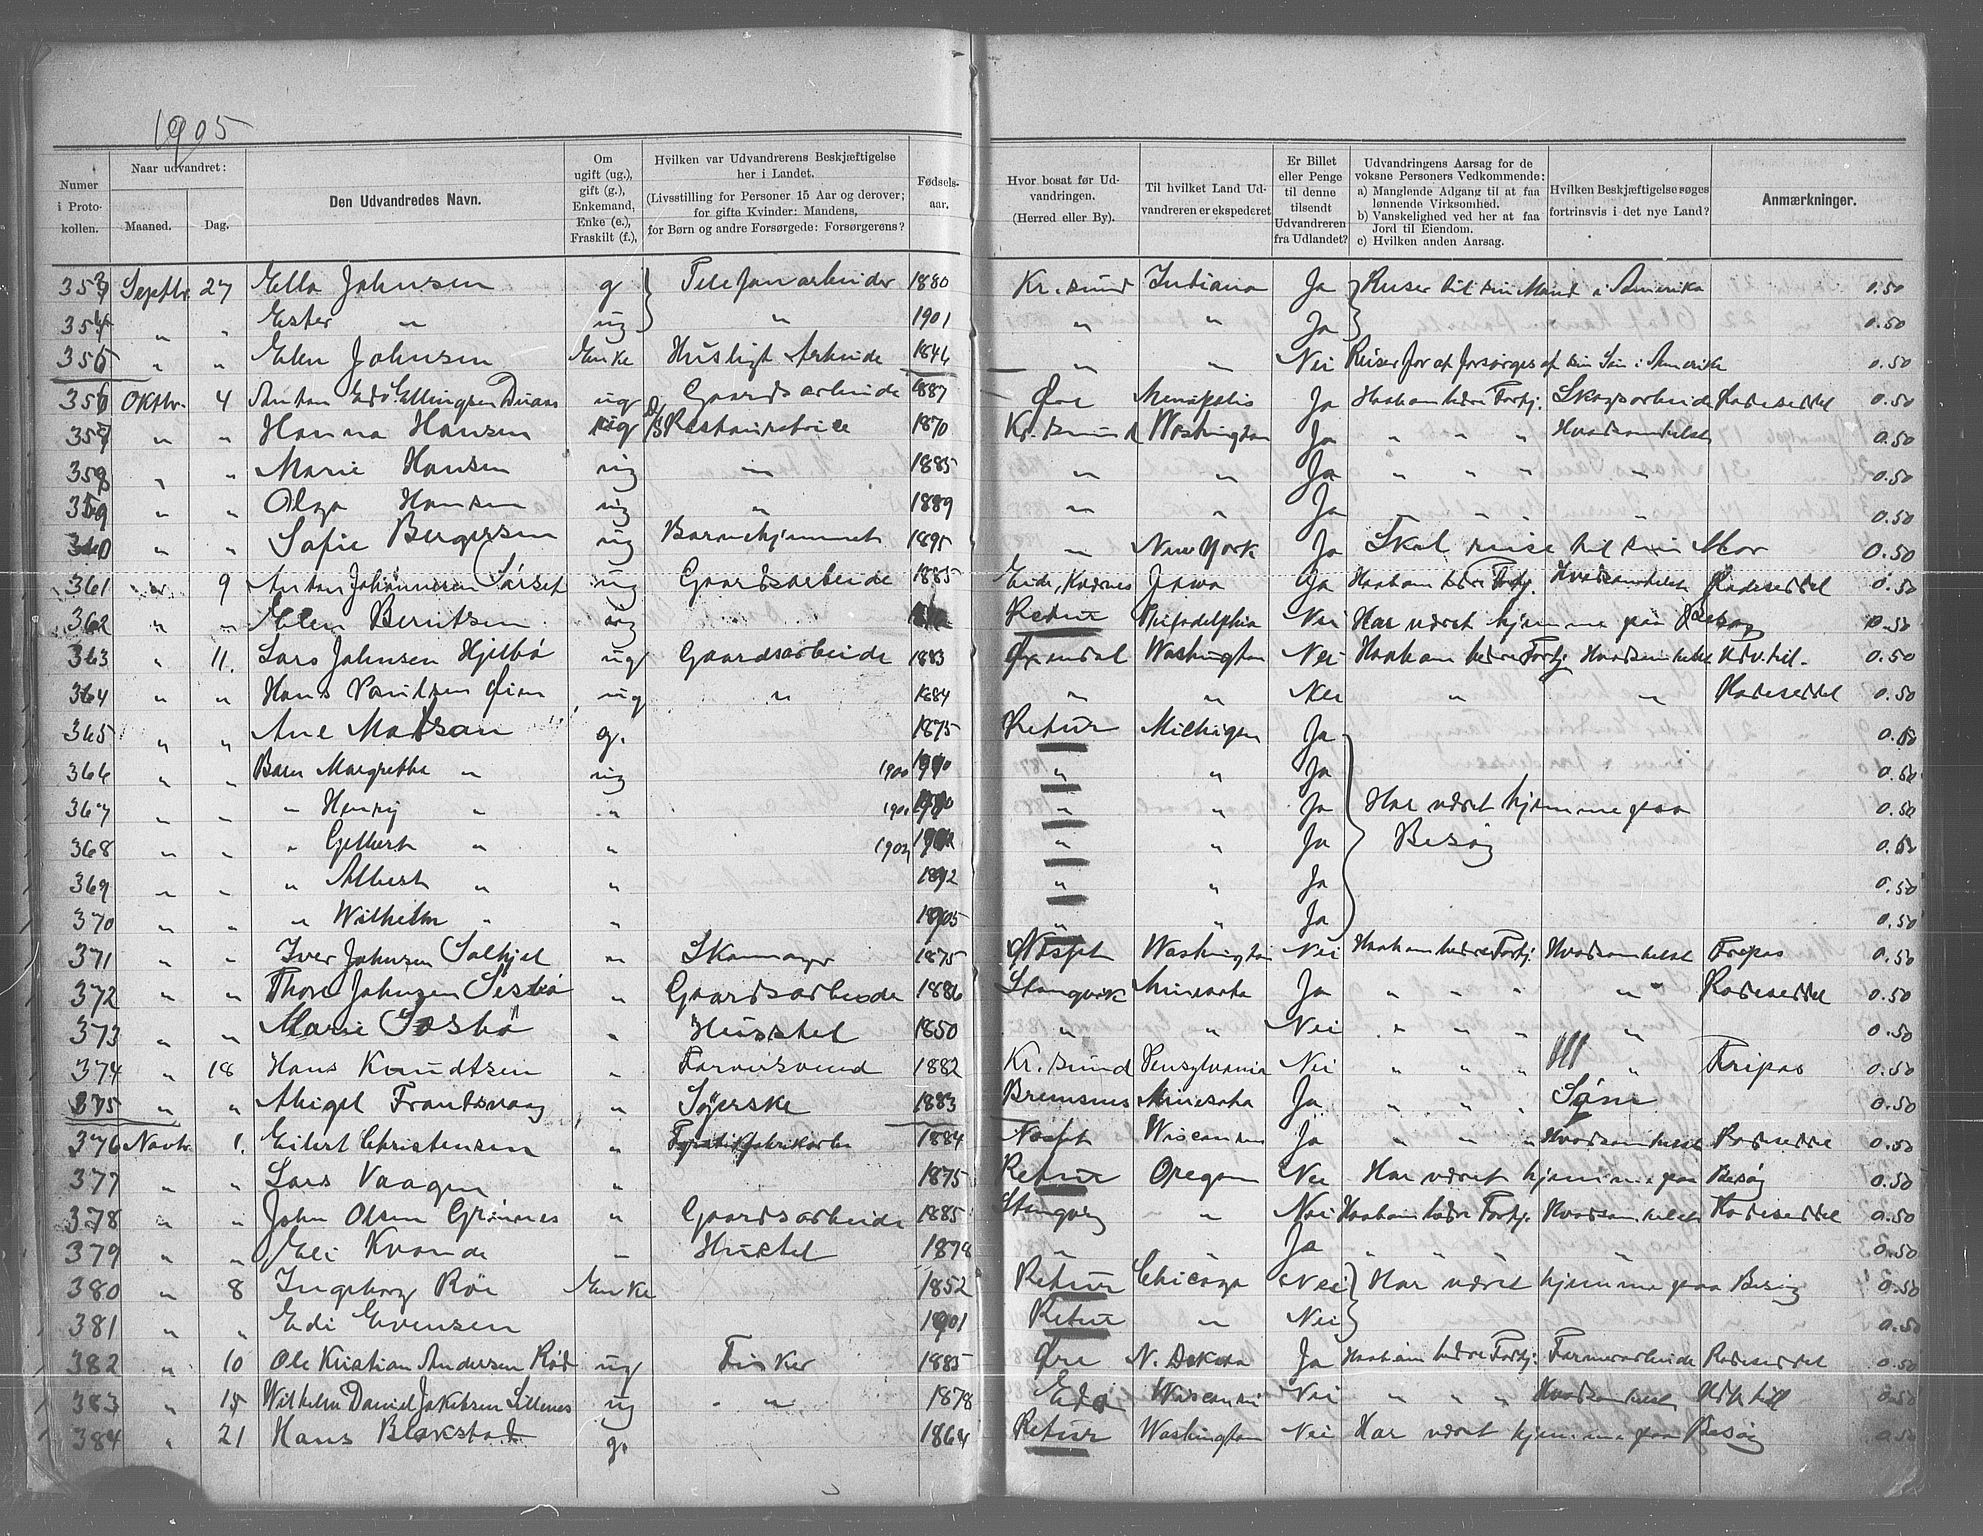 1905
Numer i Protokollen. | Naar udvandret: Maaned. Dag. | Den Udvandredes Navn. | Om ugift (ug.), gift (g.), Enkemand, Enke (e.), Fraskilt (f.), | Hvilken var Udvandrerens Beskjæftigelse her i Landet. (Livsstilling for Personer 15 Aar og derover; for gifte Kvinder: Mandens, for Børn og andre Forsørgede: Forsørgerens? | Fødselsaar. | Hvor bosat før Udvandringen. (Herred eller By). | Til hvilket Land Udvandreren er ekspederet | Er Billet eller Penge til denne tilsendt Udvandreren fra Udlandet? | Udvandringens Aarsag for de voksne Personers Vedkommende: a) Manglende Adgang til at faa lønnende Virksomhed. b) Vanskelighed ved her at faa Jord til Eiendom. c) Hvilken anden Aarsag. | Hvilken Beskjæftigelse søges fortrinsvis i det nye Land? | Anmærkninger.
353 Septbr. 27 Ella Johnsen g Telefonarbeider 1880 Kr.sund Indiana Ja Reiser til sin Mand i Amerika 0.50
354 " " Ester " ug " 1901 " " Ja 0.50
355 " " Elen Johnsen Enke Husligt Arbeide 1844 " " Nei Reiser for at forsørges af sin Søn i Amerika 0.50
356 Oktbr. 4 Anton Edv Ellingsen ug Gaardsarbeide 1887 Øre Ja Haab om bedre Fortj. Skogsarbeide Rodeseddel 0.50
357 " " Hanna Hansen ug Restauratrice 1870 Kr.sund Washington Ja " " " Hvadsomhelst 0.50
358 " " Marie Hansen ug " 1885 " " Ja " " " " 0.50
359 " " Olga Hansen ug " 1889 " " Ja " " " " 0.50
360 " " Sofie Bergersen ug Barnehjemmet 1895 " New York Ja Skal reise til sin Mor 0.50
361 " 9 Anton Johannesen Sørset ug Gaardsarbeide 1885 Eide, Jowa Ja Haab om bedre Fortj. Hvadsomhelst Rodeseddel 0.50
362 " " Elen Berntsen ug Retur Philadelphia Nei Har været hjemme paa Besøg 0.50
363 " 11. Lars Johnsen Hjelbø ug Gaardsarbeide 1883 Øxendal Washington Nei Haab om bedre Fortj Hvadsomhelst Udv.til. 0.50
364 " " Hans ug " 1884 " " Nei " " Rodeseddel 0.50
365 " " Ane Madsen g. 1875 Retur Michigan Ja 0.50
366 " " Barn Margrethe " ug 1900 " " Ja 0.50
367 " " " Henry " " 1901 " " Ja Har været hjemme paa 0.50
368 " " " Gilbert " " 1902 " " Ja Besøg 0.50
369 " " " Albert " " " " Ja 0.50
370 " " " Wilhelm " " 1905 " " Ja 0.50
371 " " Iver Johnsen Solhjel " Skomager 1875 Nesset Washington Nei Haab om bedre Fortj. Hvadsomhelst Fripas 0.50
372 " " Thore Johnsen " Gaardsarbeide 1886 Stangvik Minesota Ja " " " " Rodeseddel 0.50
373 " " Marie " Husstel 1850 " " Nei " " " " 0.50
374 " 18 Hans Knudtsen " Farversvend 1882 Kr.sund Pensylvania Nei " " " " Fripas 0.50
375 " " Abigel Frantsvaag " Syerske 1883 Bremsnes Minesota Ja " " " Søm 0.50
376 Novbr. 1. Eilert Christensen " 1884 Nesset Wisconsin Ja " " " Hvadsomhelst Rodeseddel 0.50
377 " " Lars Vaagen " 1875 Retur Oregon Nei Har været hjemme paa Besøg 0.50
378 " " John Olsen Grimnes " Gaardsarbeide 1885 Stangvig " Nei Haab om bedre Fortj. Hvadsomhelst Rodeseddel 0.50
379 " " Eli Kvande " Hustel 1878 " " Ja " " " " 0.50
380 " 8 Ingeborg Røe Enke 1852 Retur Chicago Nei Har været hjemme paa Besøg 0.50
381 " " Edi Evensen 1901 Retur " Nei 0.50
382 " 10 Ole Kristian Andersen Rød ug Fisker 1885 Øre N. Dakota Ja Haab om bedre Fortj. Farmerarbeide Rodeseddel 0.50
383 " 15 Wilhelm Daniel Jakobsen ug " 1878 Edø Wisconsin Nei " " " Hvadsomhelst 0.50
384 " 21 Hans Blakstad g. 1864 Retur Washington Nei Har været hjemme paa Besøg 0.50